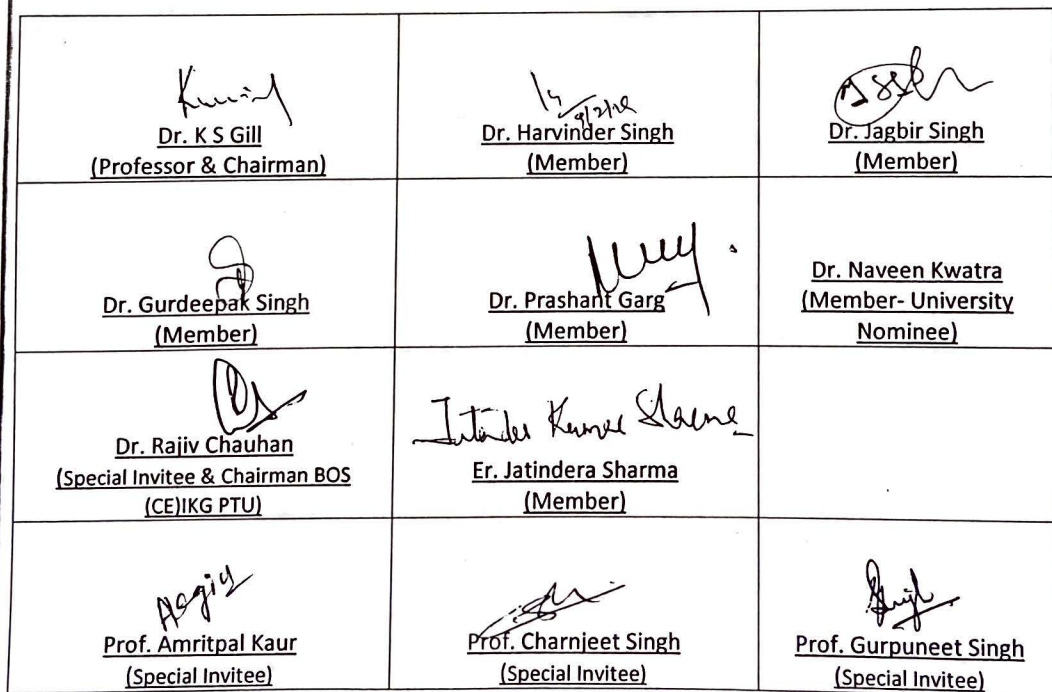 Dr. K S Gill
(Professor & Chairman)
Dr. Harvinder Singh
(Member)
Dr. Jagbir Singh
(Member)
Dr. Gurdeepak Singh
(Member)
Dr. Prashant Garg
(Member)
Dr. Naveen Kwatra
(Member- University
Nominee)
Dr. Rajiv Chauhan
(Special Invitee & Chairman BOS
(CE)IKG PTU)
Jatinder Kumar Sharma
Er. Jatindera Sharma
(Member)
Prof. Amritpal Kaur
(Special Invitee)
Prof. Charnjeet Singh
(Special Invitee)
Prof. Gurpuneet Singh
(Special Invitee)